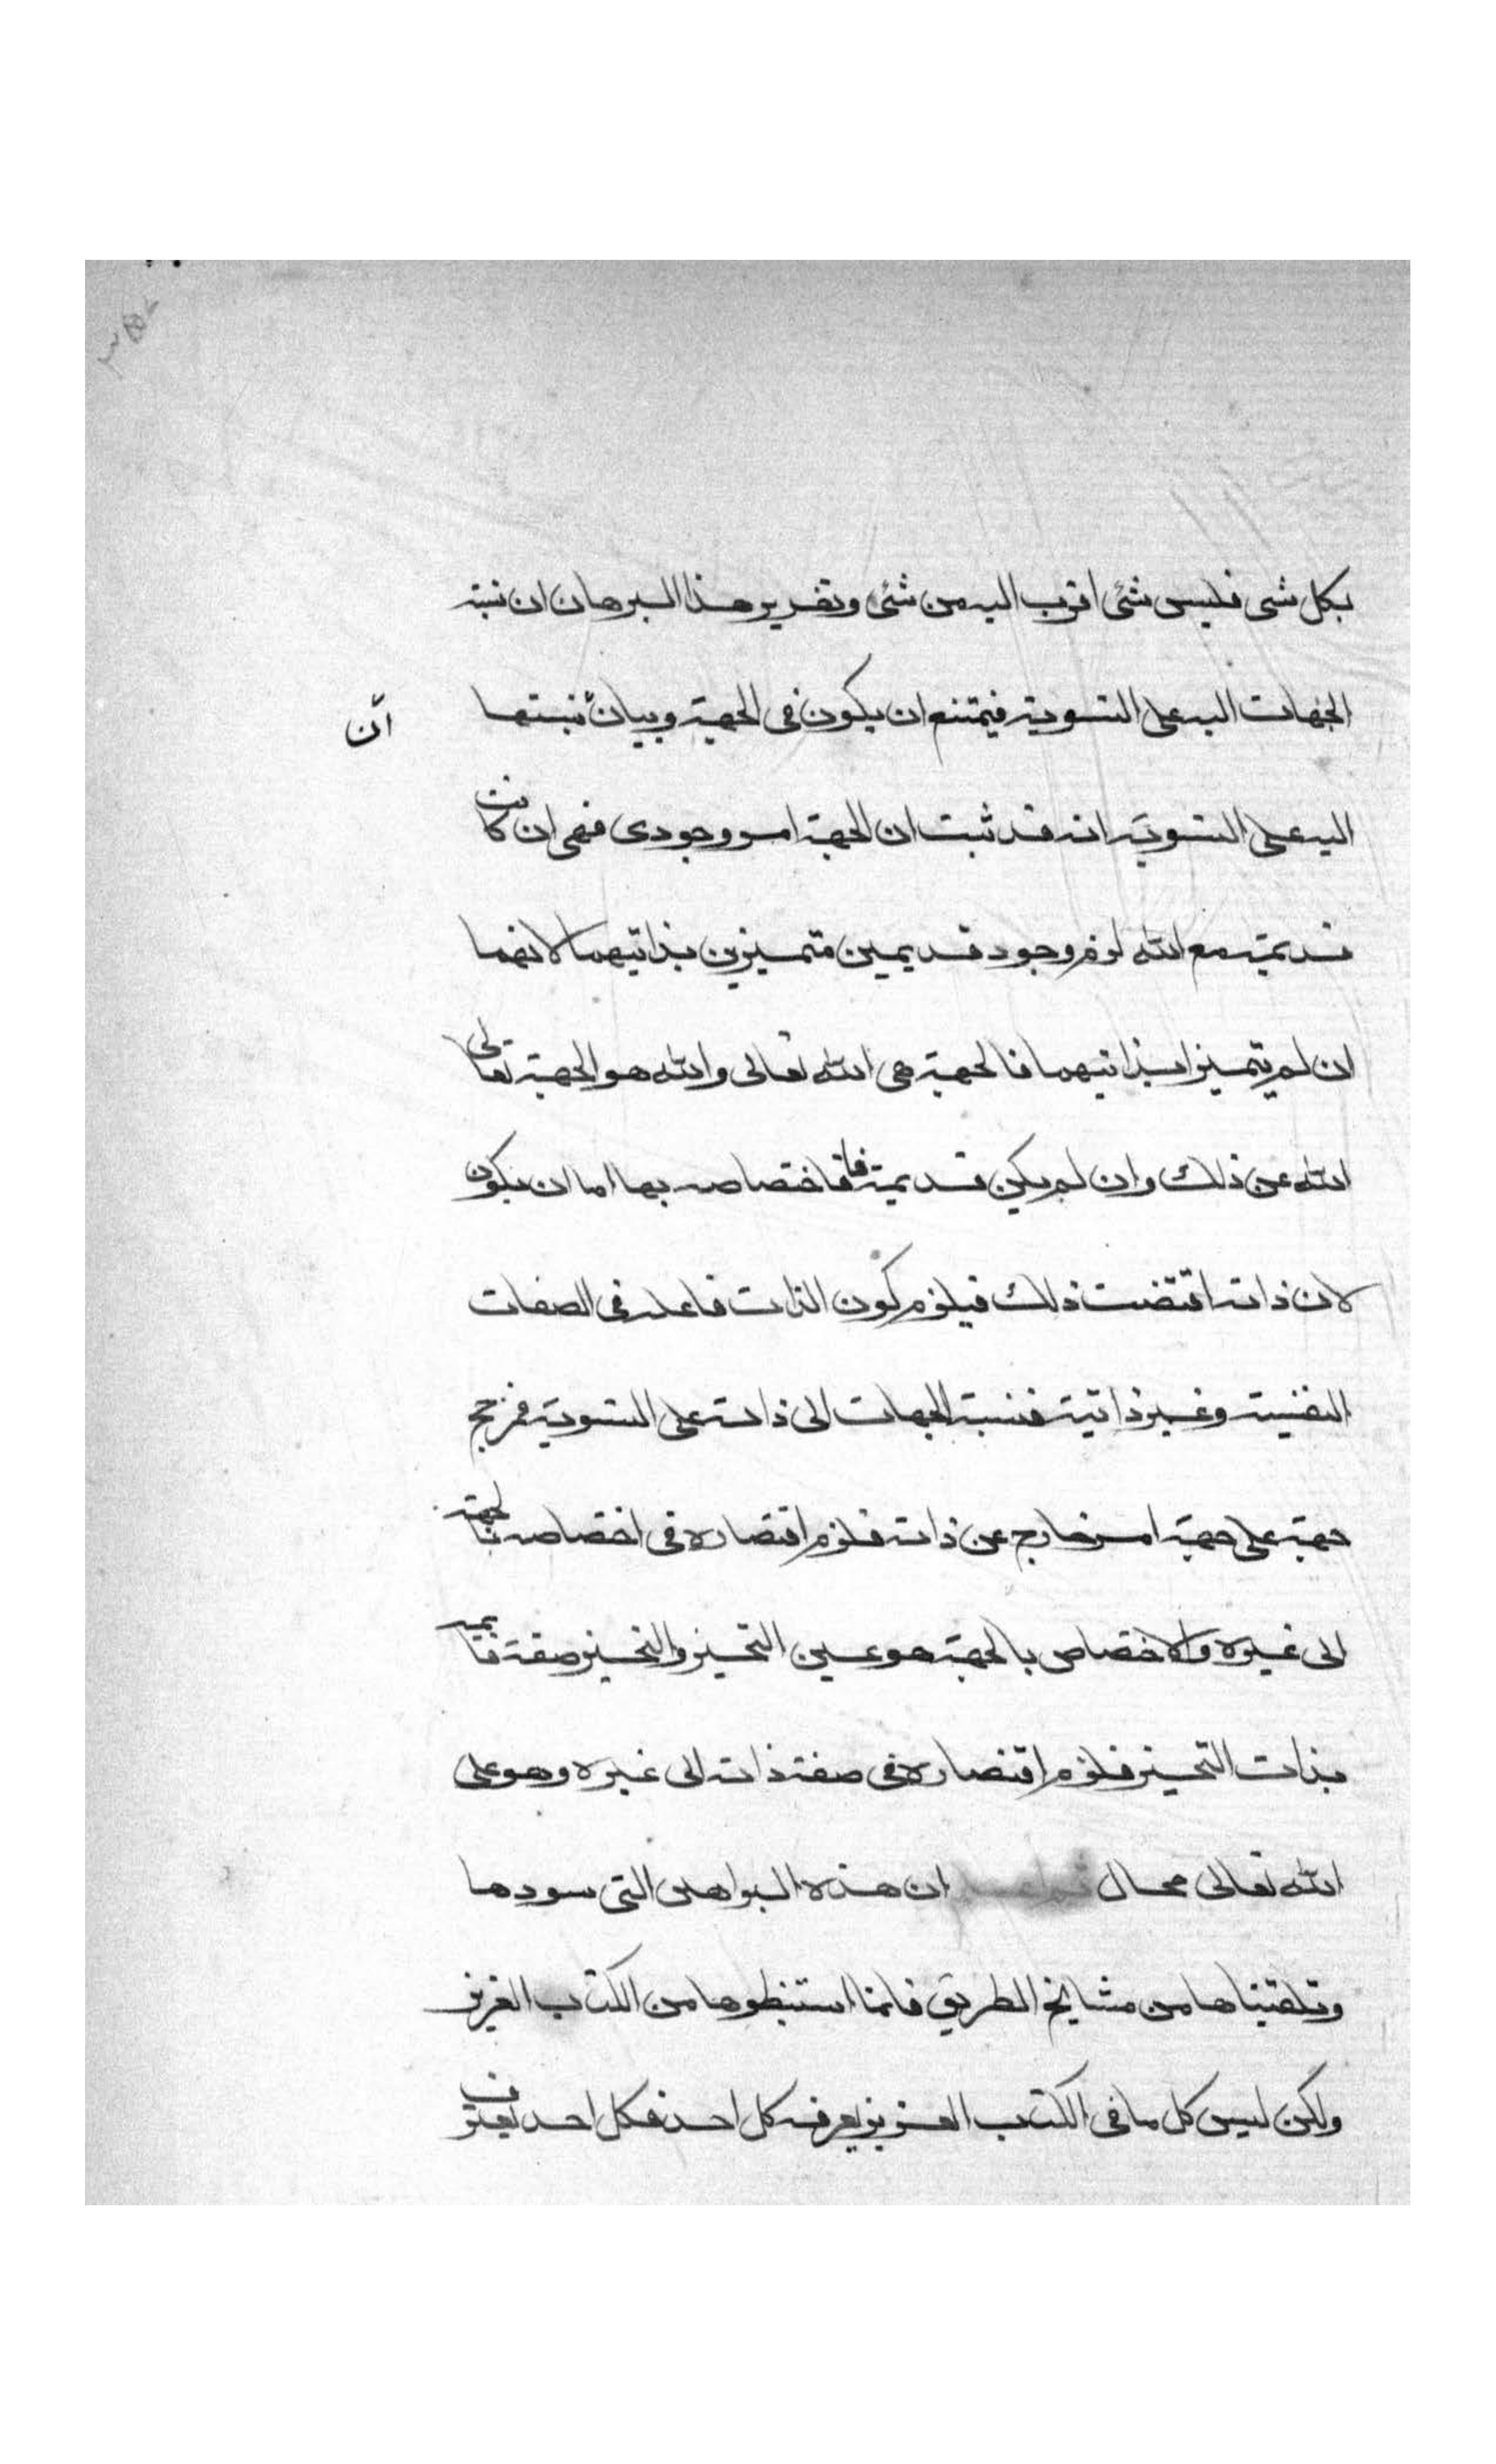 بكل شى فليس شئ اقرب اليه من شئ وتقرير هذا البرهان ان نسبة
الجهات اليه على التسوية فيمتنع ان يكون فى الجهة وبيان نسبتها
أن
اليه على التسوية انه قد ثبت ان الجهة امر وجودى فهى ان كانت
قديمة مع الله لزم وجود قديمين متميزين بذاتيهما لانهما
ان لم يتميزا بذاتيهما فالجهة هى الله تعالى والله هو الجهة تعالى
الله عن ذلك وان لم يكن قديمة فاختصاصه بها اما ان يكون
لان ذاته اقتضت ذلك فيلزم كون الذات فاعله فى الصفات
النفسية وغير ذاتية فنسبة الجهات الى ذاته على التسوية فمرجح
جهة على جهة امر خارج عن ذاته فلزم افتقاره فى اختصاصه بالجهة
الى غيره والاختصاص بالجهة هو عين التحيز والتحيز صفة قايمة
بذات التحيز فلزم افتقاره فى صفة ذاته الى غيره وهو على
الله تعالى محال ان هذه البراهين التى سودها
وتلقيناها من مشايخ الطريق فانما استنبطوها من الكتاب العزيز
ولكن ليس كل ما فى الكتاب العزيز يعرفه كل احد فكل احد يعترف